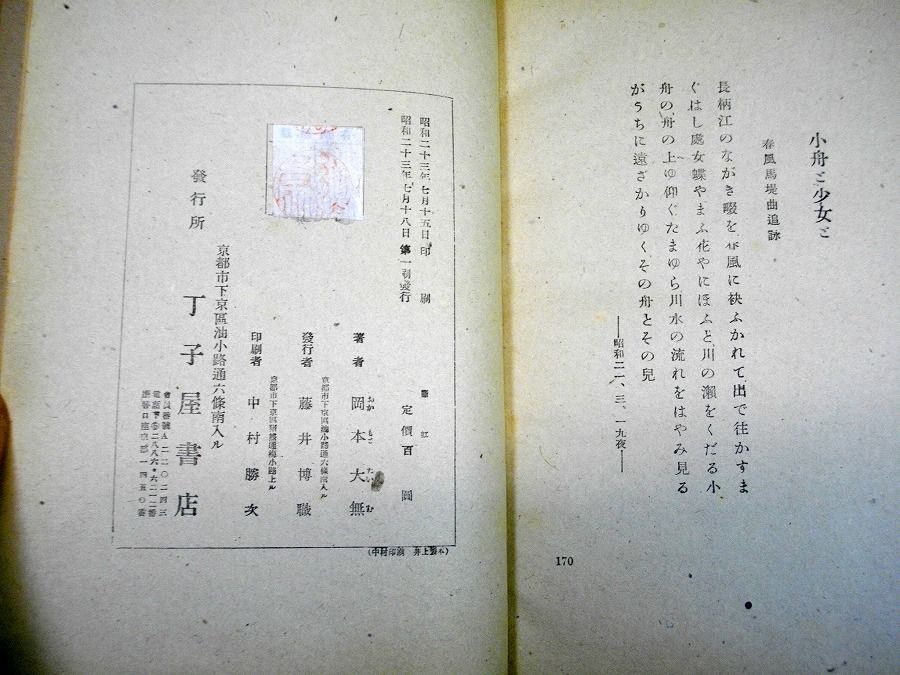 小舟と少女と
春風馬堤曲追詠
長柄江のながき畷を春風に袂ふかれて出で往かすま
ぐはし處女蝶やまふ花やにほふと川の瀬をくだる小
舟の、舟の上ゆ仰ぐたまゆら川水の流れをはやみ見る
がうちに遠ざかりゆくその舟とその兒
――昭和二一、三、一九夜――
170
昭和二十三年七月十五日印刷
昭和二十三年七月十八日第一刷發行
定價百圓
著者 岡本大無
おかもとたいむ
京都市下京區油小路通六條南入ル
發行者 藤井博職
印刷者 中村勝次
京都市下京區油小路通六條南入ル
發行所 丁子屋書店
會員番號A二二〇二四三
(中村印刷 井上製本)